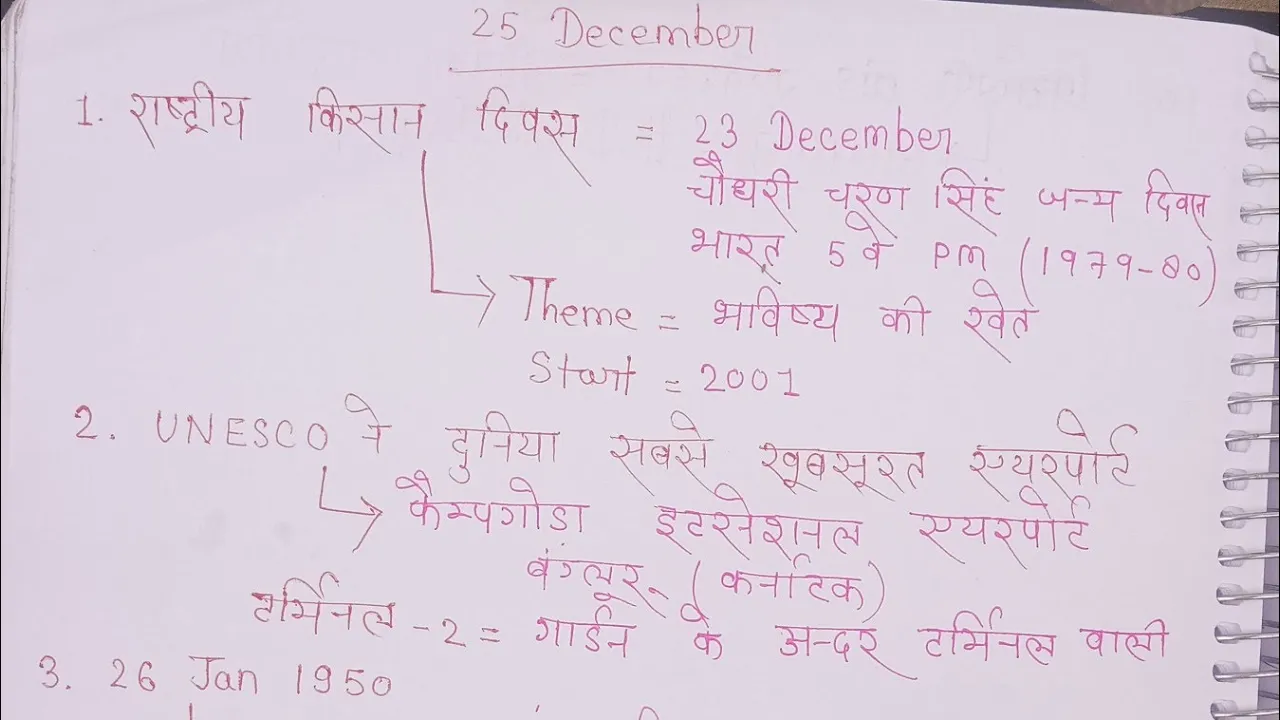 25 December
1. राष्ट्रीय किसान दिवस = 23 December
चौधरी चरण सिंह जन्म दिवस
भारत 5वे PM (1979-80)
Theme = भाविष्य की खेत
Start = 2001
2. UNESCO ने दुनिया सबसे खूबसूरत एयरपोर्ट
कैम्पगोडा इटरनेशनल एयरपोर्ट
बंग्लूरू. (कर्नाटक)
टर्मिनल - 2 = गार्डन के अन्दर टर्मिनल वाली
3. 26 Jan 1950